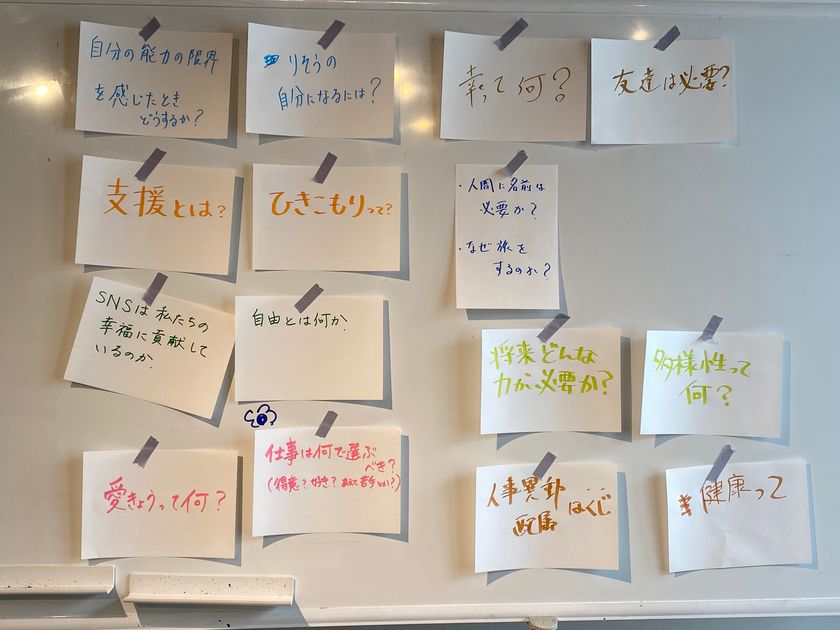 自分の能力の限界
を感じたとき
どうするか?
りそうの
自分になるには?
幸って何?
友達は必要?
支援とは?
ひきこもりって?
・人間に名前は
必要か?
・なぜ旅を
するのか?
SNSは私たちの
幸福に貢献して
いるのか
自由とは何か
将来どんな
力が必要か?
多様性って
何?
愛きょうって何?
仕事は何で選ぶ
べき?
(得意?好き?あえて苦手とか?)
人事異動
配属 はくじ
健康って